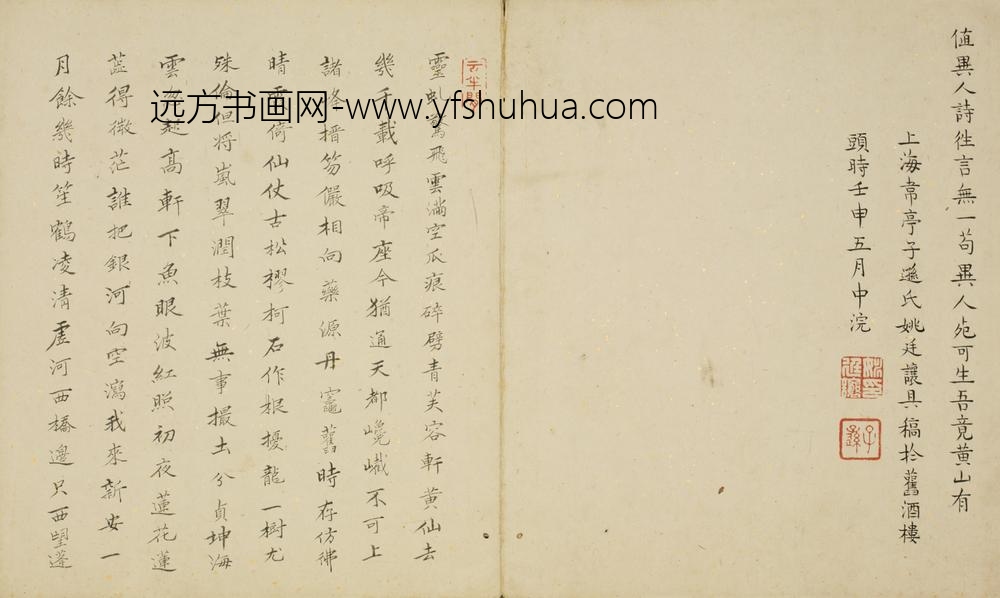 值異人詩徃言無一苟異人宛可生吾竟黄山有
上海常亭子遜氏姚廷讓具稿於舊酒樓
頭時壬申五月中浣
姚印廷讓
子遜
云半閒
靈虬驚飛雲滿空爪痕碎劈青芙容軒黄仙去
幾千載呼吸帝座今猶通天都巉巀不可上
諸峰搢笏儼相向藥源丹竈舊時存仿彿
晴雲倚仙仗古松樛柯石作根擾龍一樹尤
殊倫但将嵐翠潤枝葉無事撮土分貞坤海
雲起高軒下魚眼波紅照初夜蓮花蓮
蕋得微茫誰把銀河向空瀉我來新安一
月餘幾時笙鶴凌清虛河西橋邊只西望蓬
远方书画网-www.yfshuhua.com